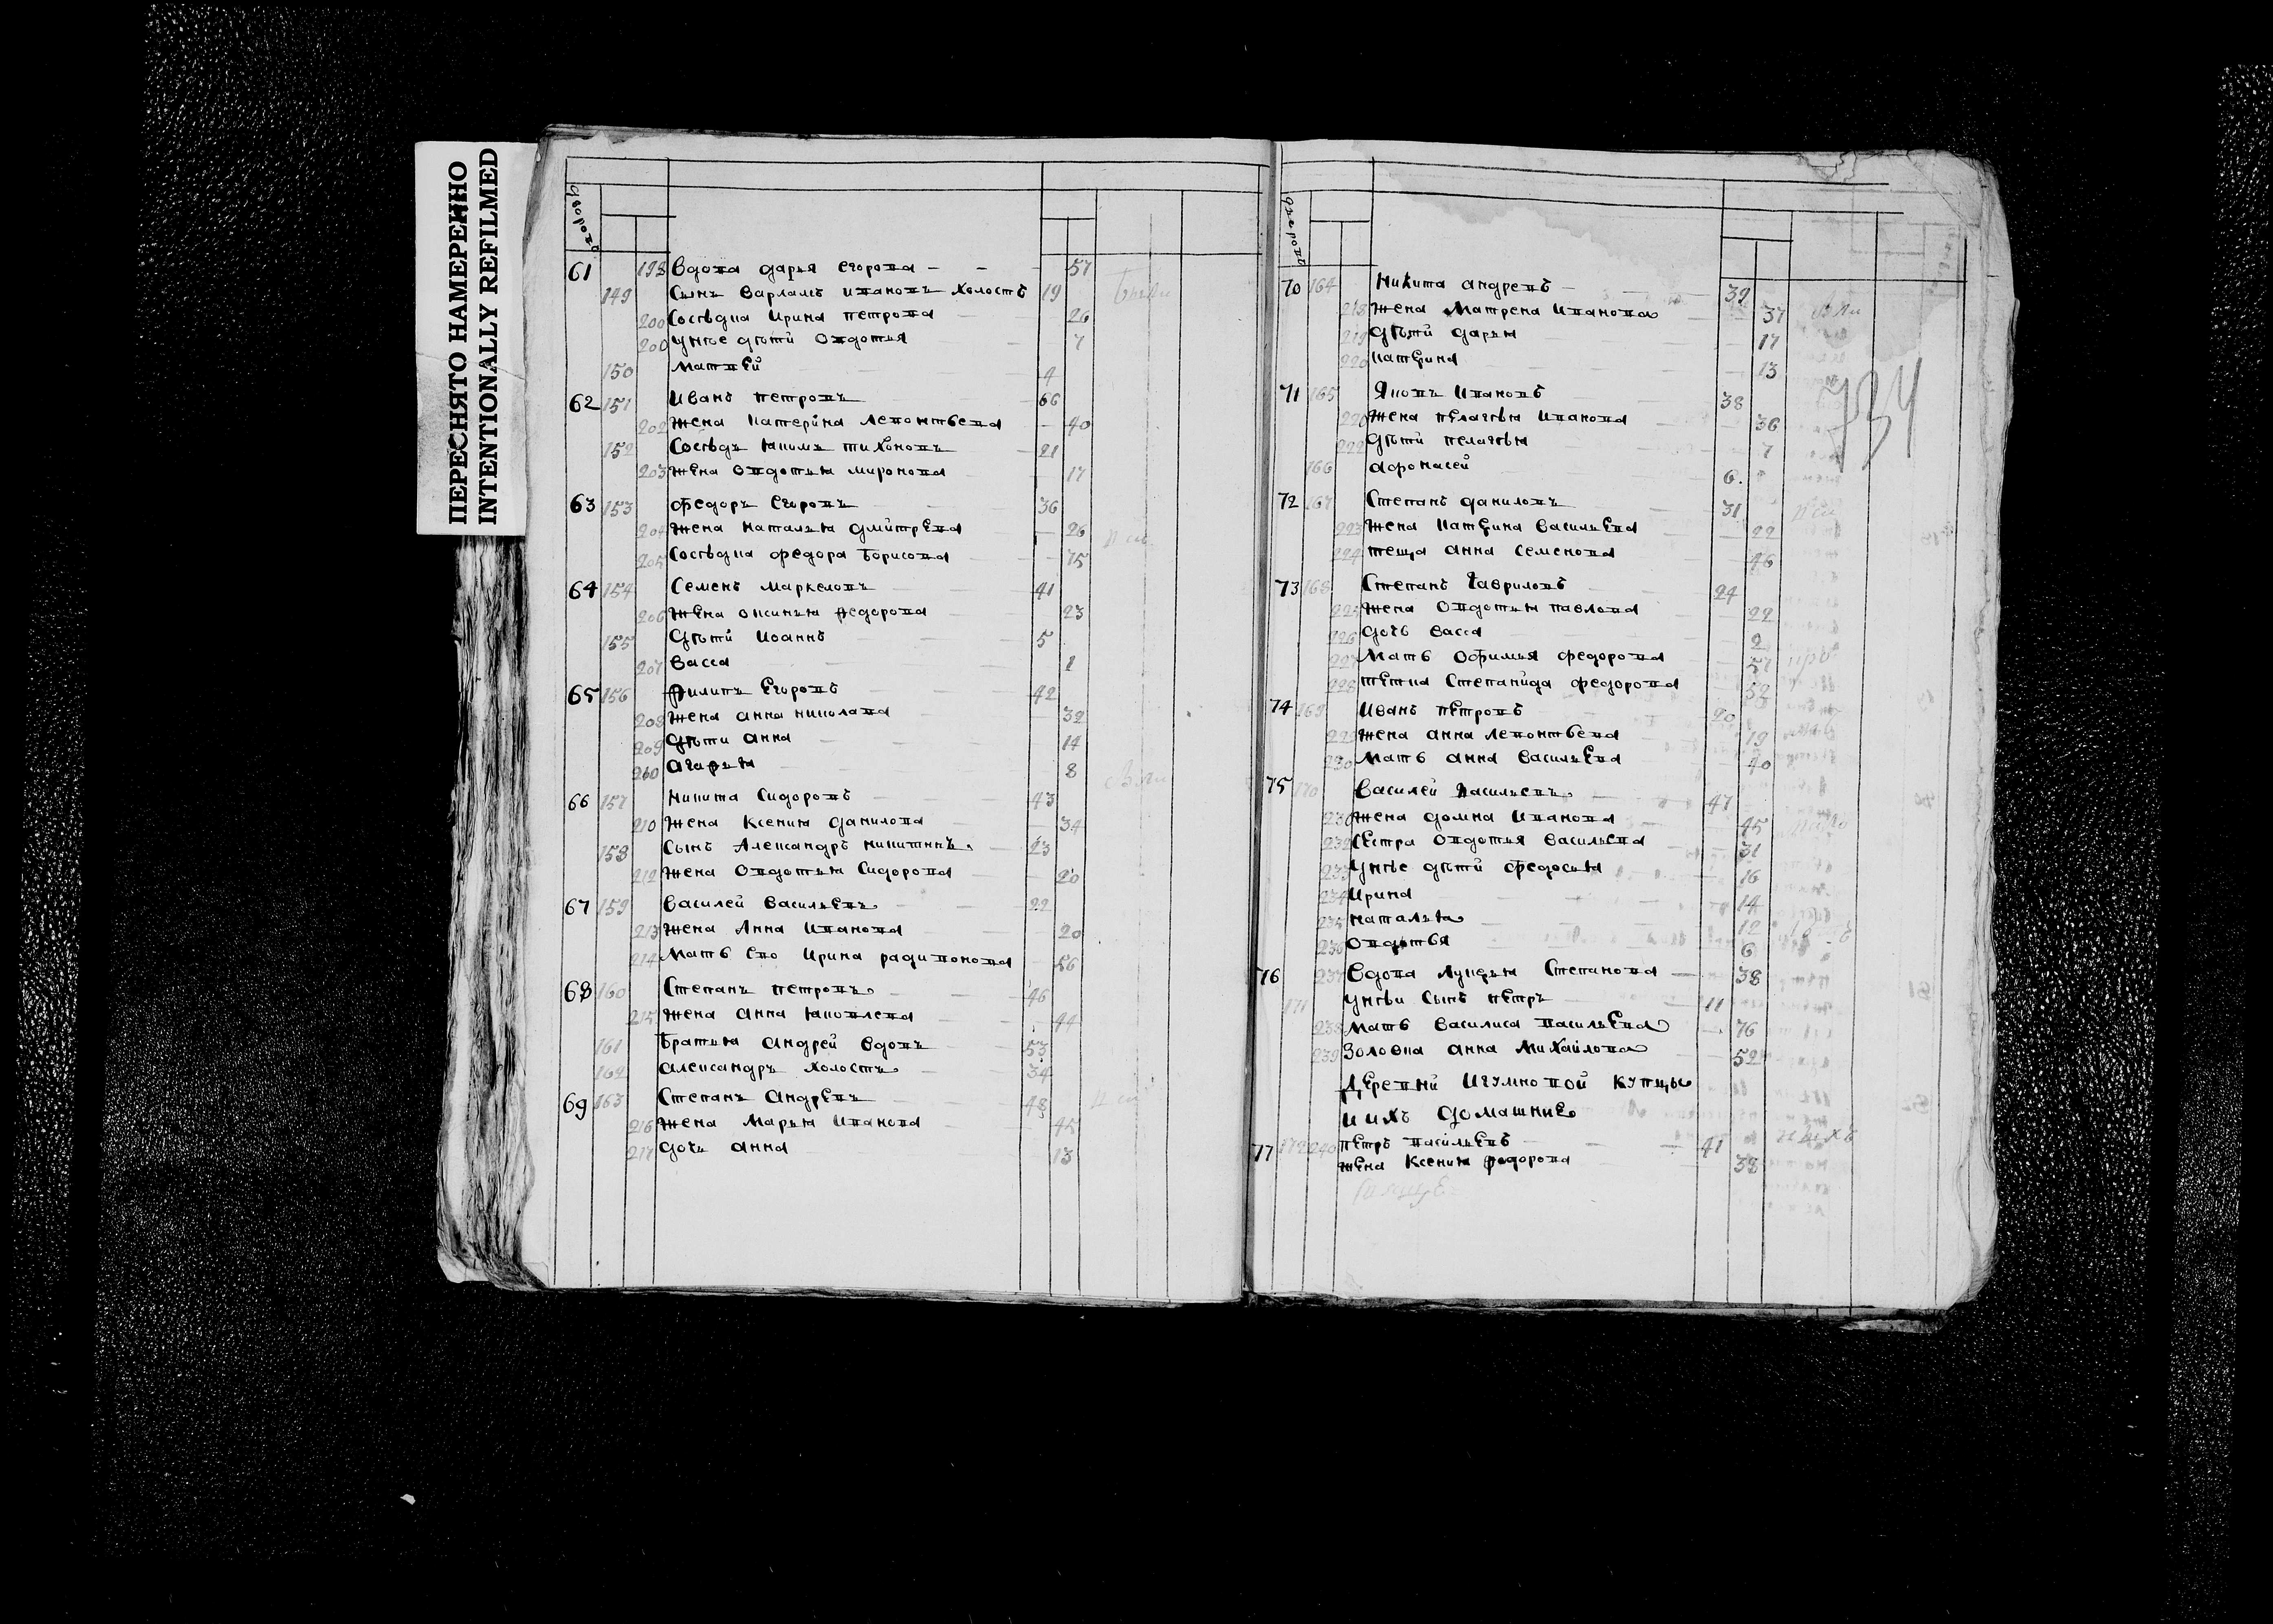 ПЕРЕСНЯТО НАМЕРЕННО
INTENTIONALLY REFILMED
61 198 Вдова дарья Егорова 57
149 Сынъ Варламъ ивановъ холостъ 19
200 Сосѣдка Ирина петрова 26
200 унѣе дѣти Овдотья 7
150 матвей 4
62 151 Иванъ петровъ 66
202 жена катерина левонтьева 40
152 Сосѣдъ якимъ тихоновъ 21
203 жена овдотья миронова 17
63 153 федоръ Егоровъ 36
204 жена наталья дмитрева 26
205 Сосѣдка федора борисова 75
64 154 Семенъ маркеловъ 41
206 жена оксинья федорова 23
155 Дѣти Иоаннъ 5
207 Васса 1
65 156 филипъ Егоровъ 42
208 жена анна николава 32
209 Дѣти анна 14
260 агафья 8
66 157 никита Сидоровъ 43
210 жена Ксения данилова 34
158 Сынъ Александръ никитинъ 23
212 жена Овдотья Сидорова 20
67 159 Василей Васильевъ 22
213 жена Анна Иванова 20
214 мать Ево Ирина радивонова 56
68 160 Степанъ петровъ 46
215 жена анна яковлева 44
161 братья андрей вдовъ 53
162 александръ холостъ 34
69 163 Степанъ Андревъ 48
216 жена Марья Иванова 45
217 дочь анна 13
70 164 Никита андревъ 39
218 жена Матрена Иванова 37
219 дѣти дарья 17
220 катерина 13
734
71 165 Яковъ Ивановъ 38
220 жена пелагѣя Иванова 36
222 Дѣти пелагѣя 7
166 афонасей 6.
72 167 Степанъ даниловъ 31
223 жена катерина Васильева 22
224 теща анна Семенова 46
73 168 Степанъ Гавриловъ 24
225 жена Овдотья павлова 22
226 дочь Васса 2
227 Мать Офимья федорова 57
228 тетка Степанида федорова 52
74 169 Иванъ петровъ 20
229 жена анна левонтьева 19
230 мать анна Васильева 40
75 170 Василей васильевъ 47
230 жена домна Иванова 45
232 сестра Овдотья Васильева 31
233 унѣе дѣти федосья 16
234 Ирина 14
235 наталья 12
236 овдотья 6
76 237 Вдова лукерья Степанова 38
171 унѣи сынъ петръ 11
238 мать Василиса васильева 76
239 Золовка анна михайлова 52
деревни Игумновой купцы
и ихъ домашние
77 172 240 петръ васильевъ 41
жена Ксения федорова 38